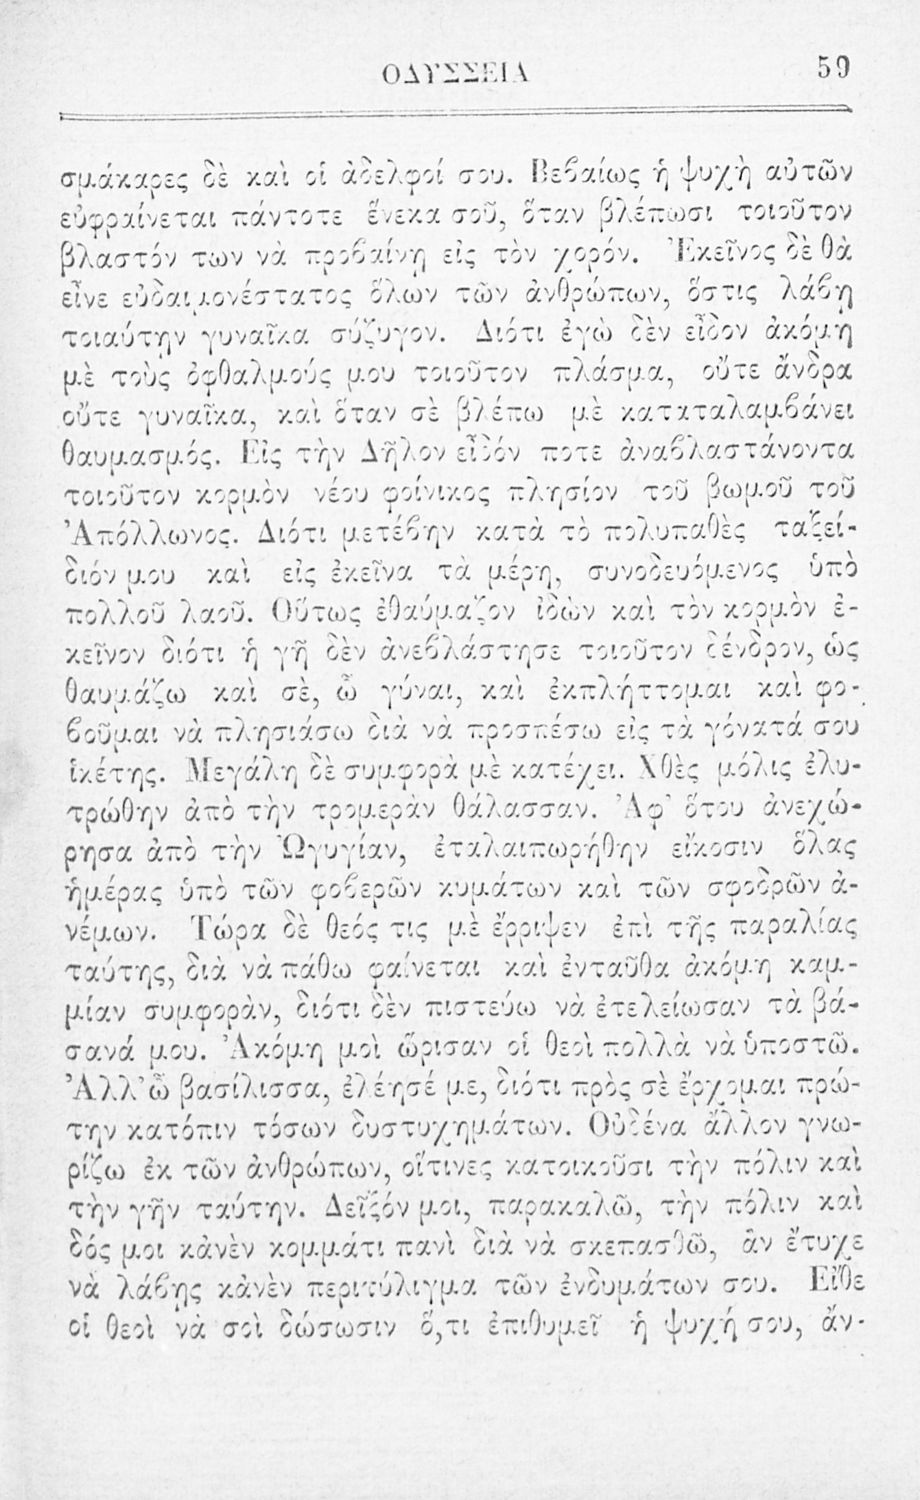 ΟΔΥΣΣΕΙΑ 59
σμάκαρες δὲ καὶ οἱ ἀδελφοί σου. Βεβαίως ἡ ψυχὴ αὐτῶν
εὐφραίνεται πάντοτε ἕνεκα σοῦ, ὅταν βλέπωσι τοιοῦτον
βλαστόν των νὰ προβαίνῃ εἰς τὸν χορόν. Ἐκεῖνος δὲ θὰ
εἶνε εὐδαιμονέστατος ὅλων τῶν ἀνθρώπων, ὅστις λάβῃ
τοιαύτην γυναῖκα σύζυγον. Διότι ἐγὼ δὲν εἶδον ἀκόμη
μὲ τοὺς ὀφθαλμούς μου τοιοῦτον πλάσμα, οὔτε ἄνδρα
οὔτε γυναῖκα, καὶ ὅταν σὲ βλέπω μὲ καταταλαμβάνει
θαυμασμός. Εἰς τὴν Δῆλον εἶδόν ποτε ἀναβλαστάνοντα
τοιοῦτον κορμὸν νέου φοίνικος πλησίον τοῦ βωμοῦ τοῦ
Ἀπόλλωνος. Διότι μετέβην κατὰ τὸ πολυπαθὲς ταξεί-
διόν μου καὶ εἰς ἐκεῖνα τὰ μέρη, συνοδευόμενος ὑπὸ
πολλοῦ λαοῦ. Οὕτως ἐθαύμαζον ἰδὼν καὶ τὸν κορμὸν ἐ-
κεῖνον διότι ἡ γῆ δὲν ἀνεβλάστησε τοιοῦτον δένδρον, ὡς
θαυμάζω καὶ σὲ, ὦ γύναι, καὶ ἐκπλήττομαι καὶ φο-
βοῦμαι νὰ πλησιάσω διὰ νὰ προσπέσω εἰς τὰ γόνατά σου
ἱκέτης. Μεγάλη δὲ συμφορὰ μὲ κατέχει. Χθὲς μόλις ἐλυ-
τρώθην ἀπὸ τὴν τρομερὰν θάλασσαν. Ἀφ' ὅτου ἀνεχώ-
ρησα ἀπὸ τὴν Ὠγυγίαν, ἐταλαιπωρήθην εἴκοσιν ὅλας
ἡμέρας ὑπὸ τῶν φοβερῶν κυμάτων καὶ τῶν σφοδρῶν ἀ-
νέμων. Τώρα δὲ θεός τις μὲ ἔρριψεν ἐπὶ τῆς παραλίας
ταύτης, διὰ νὰ πάθω φαίνεται καὶ ἐνταῦθα ἀκόμη καμ-
μίαν συμφορὰν, διότι δὲν πιστεύω νὰ ἐτελείωσαν τὰ βά-
σανά μου. Ἀκόμη μοὶ ὥρισαν οἱ θεοὶ πολλὰ νὰ ὑποστῶ.
Ἀλλ' ὦ βασίλισσα, ἐλέησέ με, διότι πρὸς σὲ ἔρχομαι πρώ-
την κατόπιν τόσων δυστυχημάτων. Οὐδένα ἄλλον γνω-
ρίζω ἐκ τῶν ἀνθρώπων, οἵτινες κατοικοῦσι τὴν πόλιν καὶ
τὴν γῆν ταύτην. Δεῖξόν μοι, παρακαλῶ, τὴν πόλιν καὶ
δός μοι κἀνὲν κομμάτι πανὶ διὰ νὰ σκεπασθῶ, ἂν ἔτυχε
νὰ λάβῃς κἀνὲν περιτύλιγμα τῶν ἐνδυμάτων σου. Εἴθε
οἱ θεοὶ νὰ σοὶ δώσωσιν ὅ,τι ἐπιθυμεῖ ἡ ψυχή σου, ἄν-